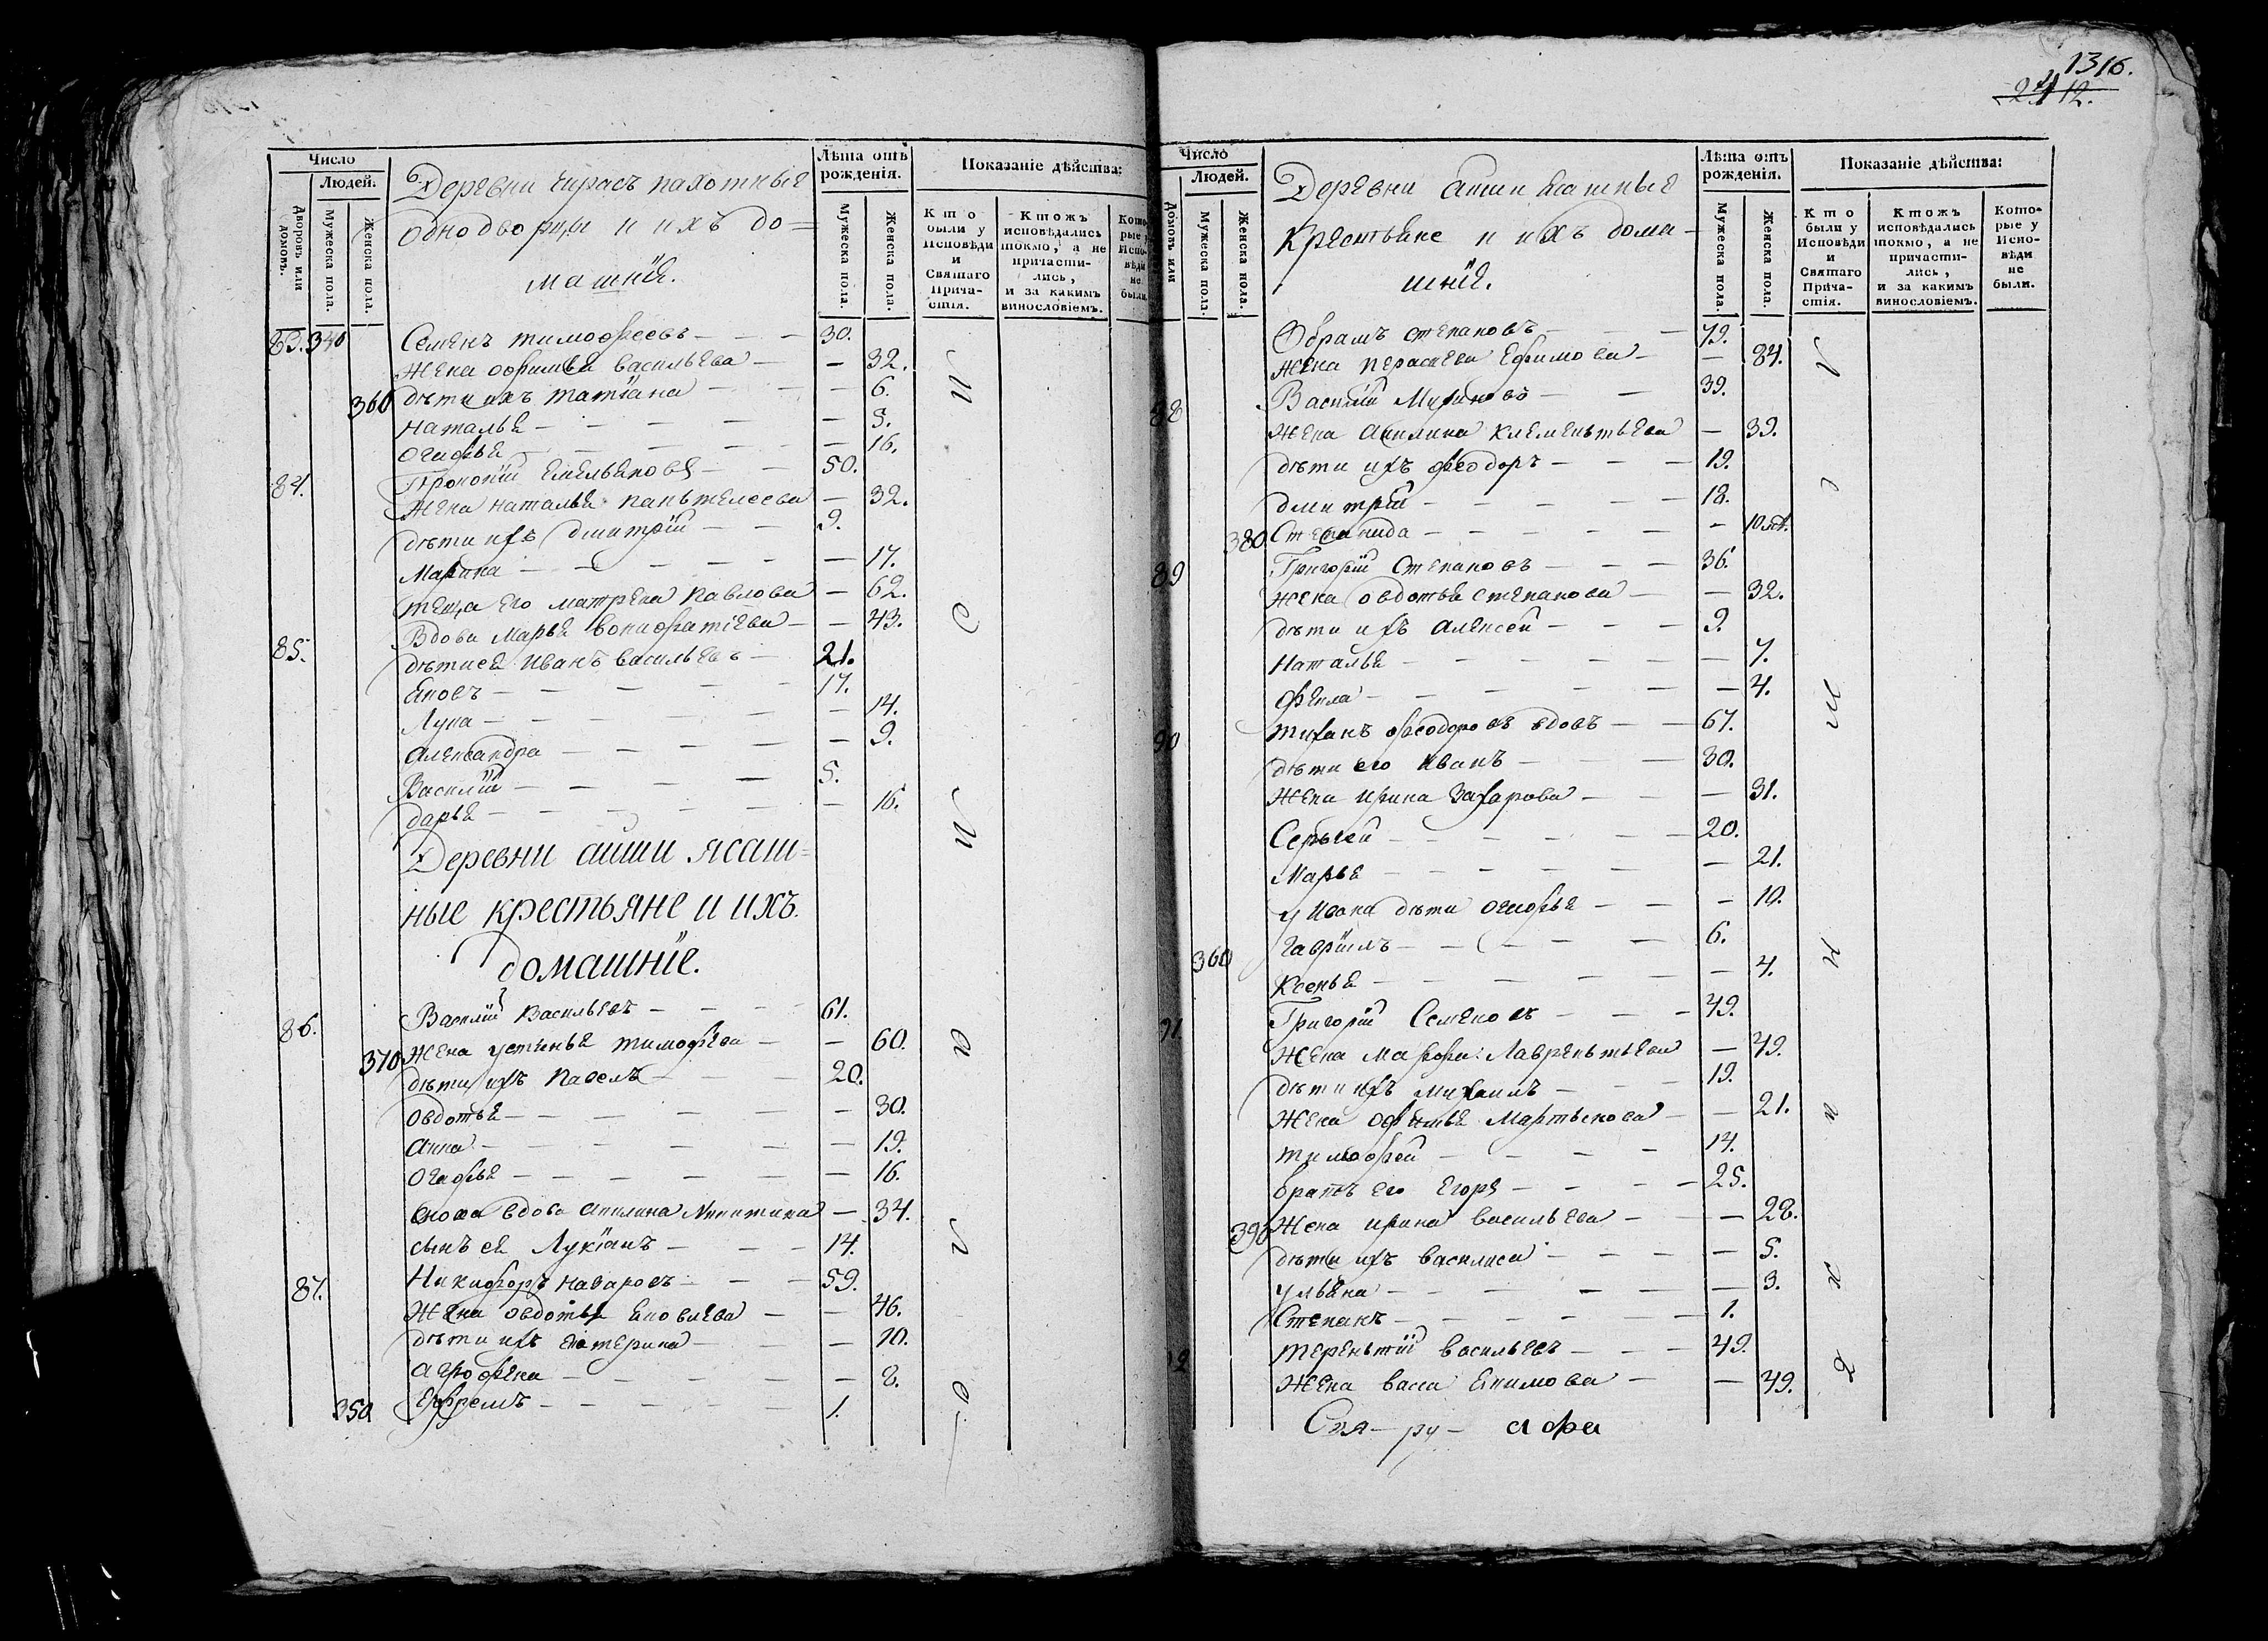 Число
Людей.
Дворовъ или домовъ.
Мужеска пола.
Женска пола.
Деревни пахотные
однодворцы и ихъ до=
машнїя.
Лѣта отъ рожденія.
Мужеска пола.
Женска пола.
Показаніе дѣйства:
Кто были у Исповѣди и Святаго Причастія.
Ктожъ исповѣдались токмо, а не причастились, и за какимъ винословіемъ.
Которые у Исповѣди не были.
83. 340 Семенъ тимофеевъ — 30.
жена офимья васильева — 32.
360 дѣти ихъ татїана — 6.
наталья — 5.
огафья — 16.
84. Прокопїй емельяновъ — 50.
жена наталья паньтелеева — 32.
дѣти ихъ дмитрїй — 9.
Марина — 17.
теща его матрена павлова — 62.
85. Вдова марья вонифатїева — 43.
дѣти ея иванъ васильевъ — 21.
яковъ — 17.
Лука — 14.
александра — 9.
Василїй — 5.
дарья — 16.
Деревни аиши ясаш=
ные крестьяне и ихъ
домашнїе.
86. Василїй Васильевъ — 61.
370 жена устинья тимофѣева — 60.
дѣти ихъ павелъ — 20.
овдотья — 30.
анна — 19.
огафья — 16.
сноха вдова акилина никитина — 34.
сынъ ея Лукїанъ — 14.
87. Никифоръ назаровъ — 59.
жена овдотья яковлева — 46.
дѣти ихъ катерина — 10.
агрофена — 8.
350 Ефремъ — 1.
И с п о
1316.
2412.
Число
Людей.
домовъ или
Мужеска пола.
Женска пола.
Деревни аиши ясашные
крестьяне и ихъ дома-
шнїя.
Лѣта отъ рожденія.
Мужеска пола.
Женска пола.
Показаніе дѣйства:
Кто были у Исповѣди и Святаго Причастія.
Ктожъ исповѣдались токмо, а не причастились, и за какимъ винословіемъ.
Которые у Исповѣди не были.
Обрамъ степановъ — 79.
жена пераскева Ефимова — 84.
88 Василїй — 39.
жена акилина клеменьтьева — 39.
дѣти ихъ феодоръ — 19.
дмитрїй — 18.
380 Степанида — 10
89 Григорїй Степановъ — 36.
жена овдотья степанова — 32.
дѣти ихъ алексей — 9.
наталья — 7.
фекла — 4.
90 феодоровъ вдовъ — 67.
дѣти его иванъ — 30.
жена ирина захарова — 31.
Сергей — 20.
марья — 21.
у ивана дѣти огафья — 10.
360 гаврїилъ — 6.
ксенья — 4.
91 Григорїй Семеновъ — 49.
жена марфа Лавреньтьева — 49.
дѣти ихъ михаилъ — 19.
жена офимья мартынова — 21.
тимофей — 14.
братъ его егоръ — 25.
390 жена ирина васильева — 28.
дѣти ихъ василиса — 5.
ульяна — 3.
Степанъ — 1.
92 тереньтїй васильевъ — 49.
жена васа екимова — 49.